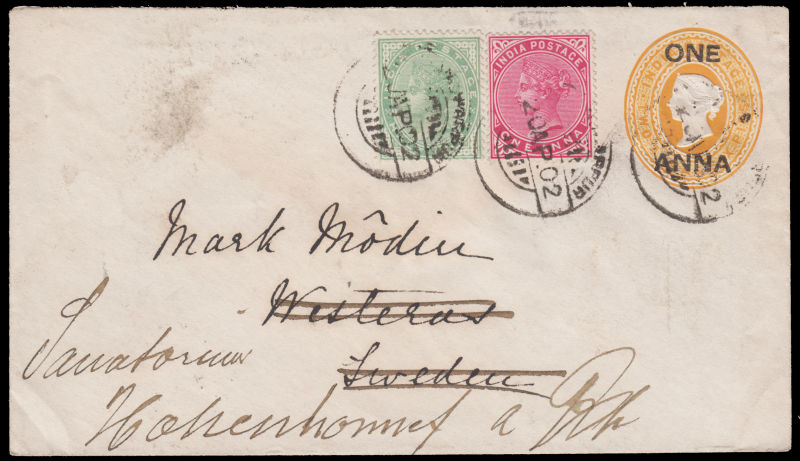 ONE
ANNA
INDIA POSTAGE
ONE ANNA
20 AP. 02
AP. 02
Mark Môdin
Westeras
Sweden
Sanatorium
Hohenhonnef a Rh